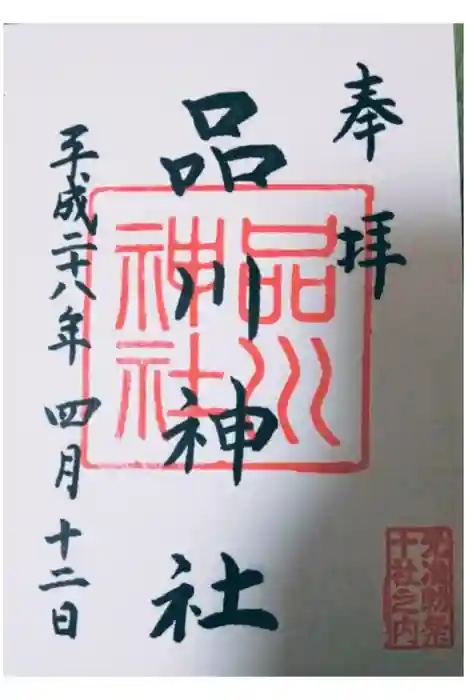 奉拝
品川神社
平成二十八年四月十二日
品川
神社
准勅祭
十社之内